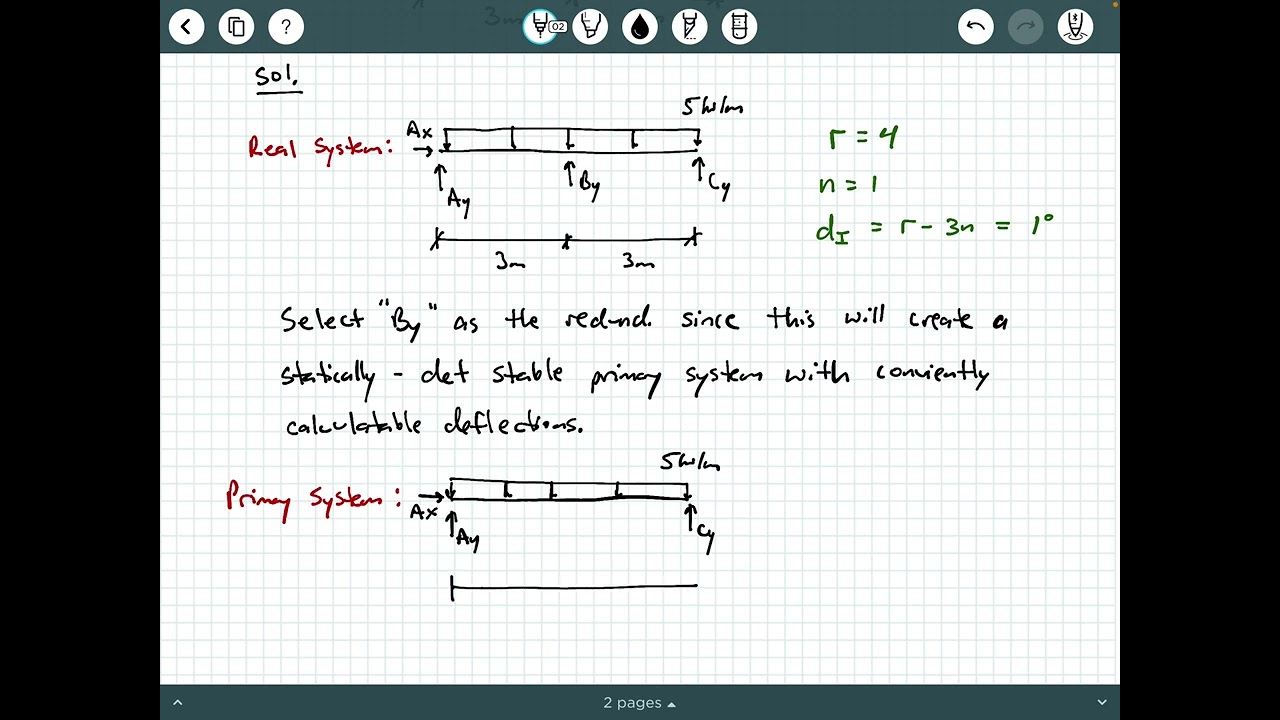 3m
02
?
Sol.
5kN/m
Real System:
Ax
Ay
By
Cy
r = 4
n = 1
dI = r - 3n = 1°
3m
3m
Select "By" as the redund. since this will create a
statically - det stable primary system with conviently
calculatable deflections.
5kN/m
Primary System:
Ax
Ay
Cy
2 pages